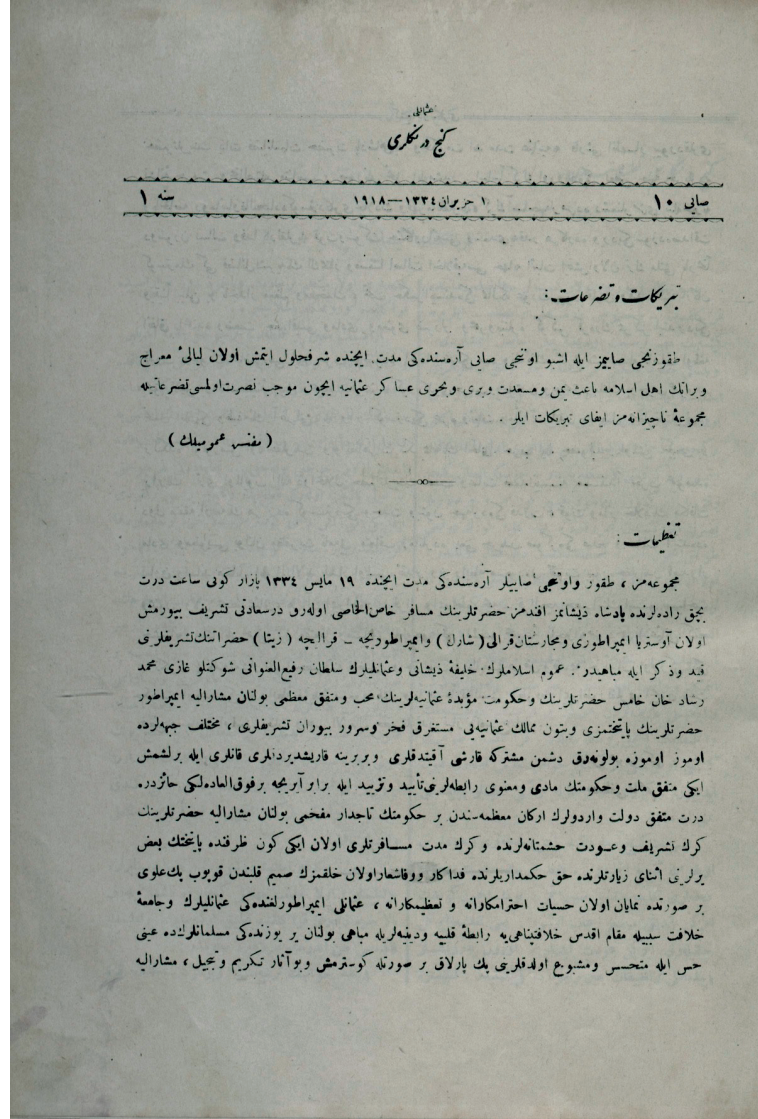 عثمانلی
كنج درنكلری
صایی ١٠
١ حزیران ١٣٣٤—١٩١٨
سنه ١
تبریكات و تضرعات:
طقوزنجی صاییمز ایله اشبو اوننجی صایی آره‌سنده‌كی مدت ایچنده شرفحلول ایتمش اولان لیالیٔ معراج
وبراتك اهل اسلامه باعث یمن ومسعدت وبری وبحری عساكر عثمانیه ایچون موجب نصرت اولمسی تضرعاتیله
مجموعهٔ ناچیزانه‌مز ایفای تبریكات ایلر .
( مفتش عمومیلك )
تعظیمات :
مجموعه‌مز ، طقوز واوننجی صاییلر آره‌سنده‌كی مدت ایچنده ١٩ مایس ١٣٣٤ بازار كونی ساعت درت
بچق راده‌لرنده پادشاه ذیشانمز افندمز حضرتلرینك مسافر خاص‌الخاصی اوله‌رق درسعادتی تشریف بیورمش
اولان آوستریا ایمپراطوری ومجارستان قرالی ( شارل ) وایمپراطوریچه – قرالیچه ( زیتا ) حضراتنك تشریفلرینی
قید وذكر ایله مباهیدر . عموم اسلاملرك خلیفهٔ ذیشانی وعثمانلیلرك سلطان رفیع‌العنوانی شوكتلو غازی محمد
رشاد خان خامس حضرتلرینك وحكومت مؤبدهٔ عثمانیه‌لرینك محب ومتفق معظمی بولنان مشارالیه ایمپراطور
حضرتلرینك پایتختمزی وبتون ممالك عثمانیه‌یی مستغرق فخر وسرور بیوران تشریفلری ، مختلف جبهه‌لرده
اوموز اوموزه بولونه‌رق دشمن مشتركه قارشی آقیتدقلری وبربرینه قاریشدیردقلری قانلری ایله برلشمش
ایكی متفق ملت وحكومتك مادی ومعنوی رابطه‌لرینی تأیید وتزیید ایله برابر آیریجه برفوق‌العاده‌لكی حائزدره
درت متفق دولت واردولرك اركان معظمه‌سندن بر حكومتك تاجدار مفخمی بولنان مشارالیه حضرتلرینك
كرك تشریف وعودت حشمتانه‌لرنده وكرك مدت مسافرتلری اولان ایكی كون ظرفنده پایتختك بعض
یرلرینی اثنای زیارتلرنده حق حكمداریلرنده فداكار ووفاشعار اولان خلقمزك صمیم قلبندن قوپوب پك علوی
بر صورتده نمایان اولان حسیات احترامكارانه و تعظیمكارانه ، عثمانلی ایمپراطورلغنده‌كی عثمانلیلرك وجامعهٔ
خلافت سببیله مقام اقدس خلافتپناهی‌یه رابطهٔ قلبیه ودینیه‌لریله مباهی بولنان یر یوزنده‌كی مسلمانلرك‌ده عینی
حس ایله متحسس ومشبوع اولدقلرینی پك پارلاق بر صورتله كوسترمش وبو آثار تكریم وتبجیل ، مشارالیه